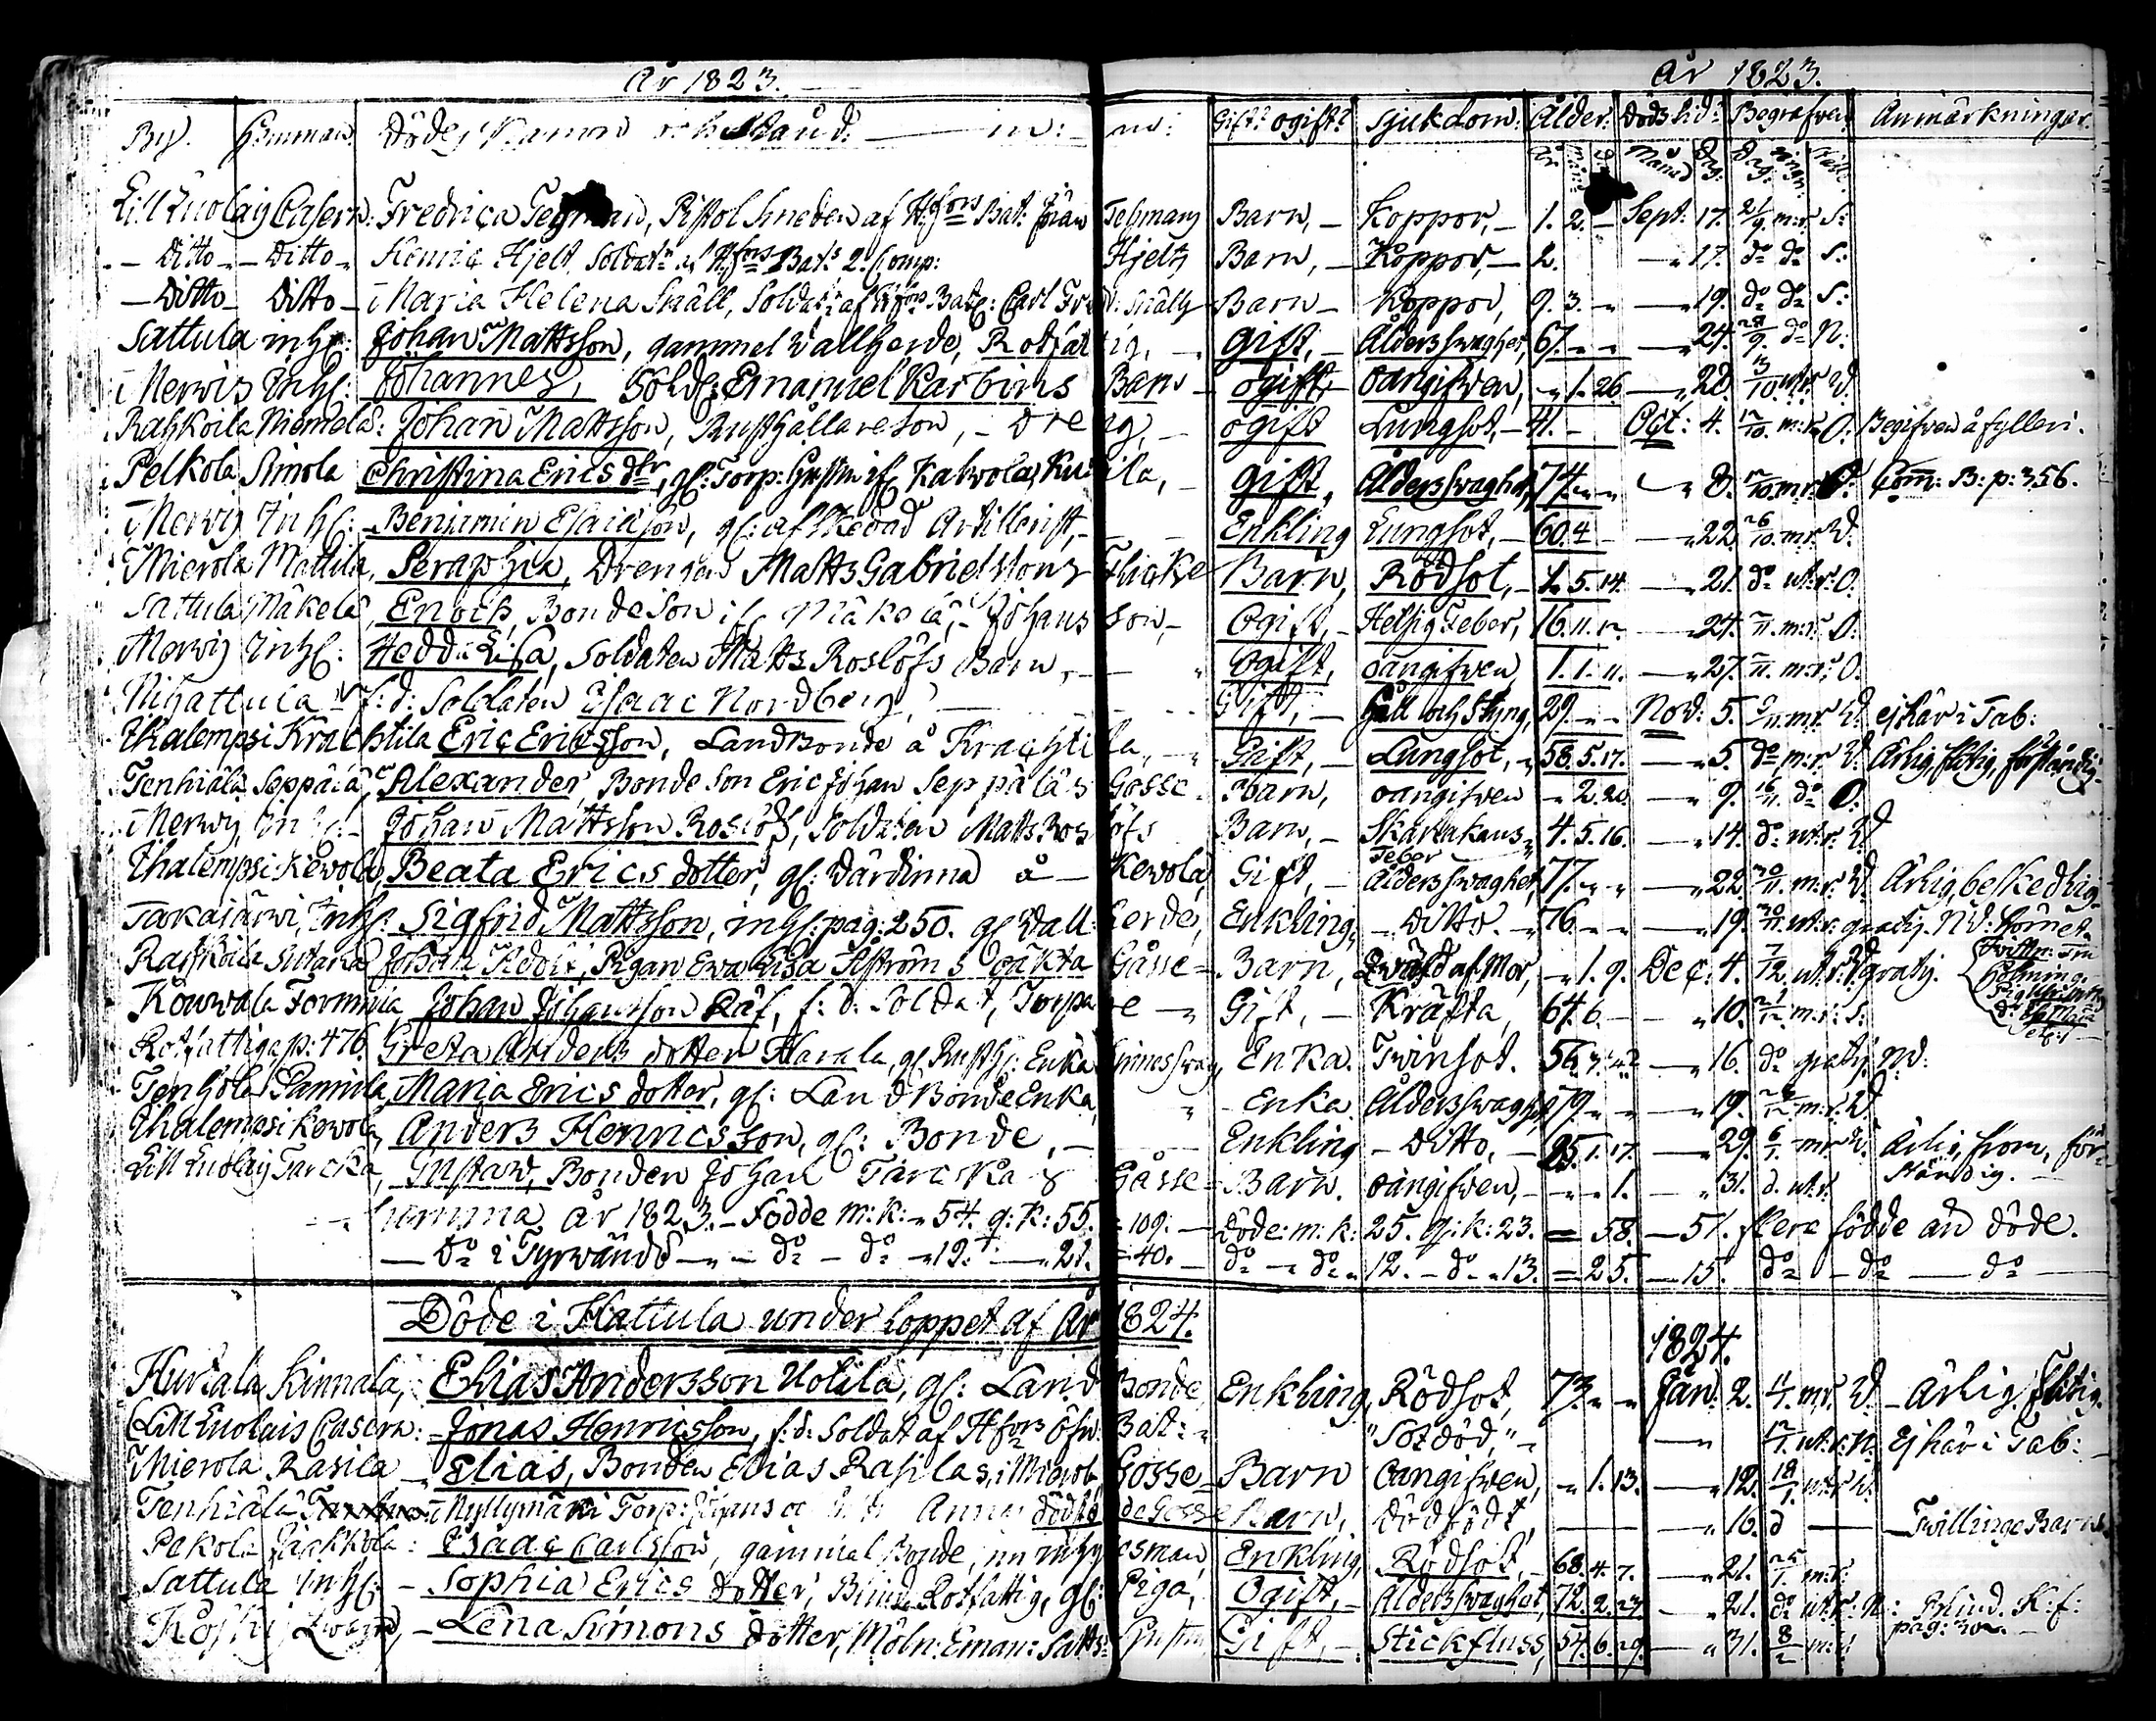 År 1823. År 1823.
By. Hemman. Döde Namn och Stånd: Gift? ogift? Sjukdom: Ålder: Dödstid: Begrafven Anmärkningar.
Lill Luolais Casern: Fredrica Tegman, Pistol Smeden af H:fors Bat: Jöran Tegmans Barn, Koppor, 1. 2. Sept: 17. 21/9. m:r. S:
Ditto Ditto Henric Hjelt, Soldat af H:fors Bat:s 2: Comp: Hjelts Barn, Koppor, 2. 17. do do S:
Ditto Ditto Maria Helena Snäll, Soldat: af H:fors Bat: Carl Fred: Snälls Barn Koppor, 9. 3. 19. do do S:
Sattula inhs: Johan Mattsson, gammel Vallherde, Rotfatig, gift, Ålders swaghet, 67. 24. 28/9. do N:
Merwis Inhs: Johannes, Sold: Emanuel Karbins Barn ogift, oangifven, 1. 26. 28. 13/10. ut:r. W.
Rahkoila Niemelä: Johan Mattsson, Rusthållareson, dreng, ogift Lungsot, 41. Oct: 4. 12/10. m:r. O: Begifven å fylleri.
Pelkola Simola Christina Ericsdtr, gl: Torp: Hustru if: Kakvola, Kurila, gift, Ålders swaghet, 74. 8. 12/10. m:r. O: Com: B: p: 356.
Merwis Inhs: Benjamin Esaiason, gl: afskedad Artillerist, Enkling Lungsot, 60. 4 22. 26/10. m:r. W.
Mierola Mattila, Seraphia, Drengen Matts Gabrielssons Flicka Barn, Rödsot, 1. 5. 14. 21. do ut:r. O:
Sattula Mäkelä, Enoch, Bondeson if: Mäkelä, Johansson, Ogift, Hetsig Feber, 16. 11. 12. 24. 2/11. m:r. O:
Merwis Inhs: Hedda Lisa, Soldaten Matts Roslöfs Barn, Ogift, oangifven, 1. 1. 11. 27. 2/11. m:r. O:
Nihattula f: d: Soldaten Isaac Nordberg, Gift, Håll och Styng, 29. Nov: 5. 9/11. m:r. W. ej här i Tab:
Ihalempsi Krachtila Eric Ericsson, Landbonde å Krachtila, Gift, Lungsot, 58. 5. 17. 5. do m:r. W. Ärlig, flitig, förståndig.
Tenhiälä Seppälä, Alexander, Bondeson Eric Johan Seppäläs Gosse Barn, oangifven 2. 20. 9. 16/11. do O:
Merwis Inhs: Johan Mattsson Roslöf, Soldaten Matts Roslöfs Barn, Skarlakans Feber 4. 5. 16. 14. do ut:r. W.
Ihalempsi Kewola, Beata Erics dotter, gl: Värdinna å Kewola, Gift, Ålders swaghet, 77. 22. 30/11. m:r. W. Ärlig, beskedlig.
Takajärwi, Inhs: Sigfrid Mattsson, inhs: pag: 250. gl: Vallherde, Enkling, Ditto. 76. 19. 30/11. ut:r. gratis. N.W.
Rahkoila Sutaria Johan Fredric, Pigan Ewa Lisa Åströms oäkta Gosse Barn, Qväfd af Mor, 1. 9. Dec: 4. 7/12. ut:r. W. gratis.
Kouwala Tormunia Johan Johansson Räf, f: d: Soldat, Torpare Gift, Kräfta, 64. 6. 10. 21/12. m:r. S:
Rotfattiga p: 476. Greta Anders dotter Havala, gl: Rusth: Enka, Sinnessvag, Enka. Twinsot. 56. 16. do gratis. N.W.
Tenhola Pamila, Maria Erics dotter, gl: Landbonde Enka, Enka Ålders swaghet, 79. 19. 26/12 m:r. W.
Ihalempsi Kewola, Anders Henricsson, gl: Bonde, Enkling Ditto, 85. 1. 17. 29. 6/1. m:r. W. Ärlig, from, förståndig.
Lill Luolais Tarcka, Gustaw, Bonden Johan Tarckas Gosse Barn. oangifven, 1. 31. d. ut:r.
Summa år 1823. Födde m: k: 54. q: k: 55. = 109. Döde: m: k: 25. q: k: 23. = 58. 51. flere födde än döde.
Do i Tyrwändö do do 19. 21. = 40. do do 12. do 13. = 25. 15. do do do
Döde i Hattula under loppet af År 1824.
1824.
Hurtala Kinnala, Elias Andersson Uotila, gl: Landbonde, Enkling, Rödsot, 73. Jan: 2. 4/1. m:r. W. Ärlig, flitig.
Lill Luolais Casern: Jonas Henricsson, f: d: Soldat af H:fors Öfn: Bat: "Sotdöd," 12/1. ut:r. N. Ej här i Tab:
Mierola Rasila Elias, Bonden Elias Rasilas, i Mierola Gosse Barn Oangifven, 1. 13. 12. 18/1. ut:r. W.
Tenhiälä Myllymäki Torp: Johans Anna dödfödde Gosse Barn, Dödfödt, 16. d Twillinge Barn
Pekola Jackola: Isaac Carlsson, gammal Bonde, nu inhysesman Enkling, Rödsot, 68. 4. 7. 21. 25/1. m:r.
Sattula Inhs: Sophia Erics dotter, Blind Rotfattig, gl: Piga, Ogift, Ålders swaghet, 72. 2. 23. 21. do ut:r. N: Blind. K: f: pag: 302.
Koski Qvarn, Lena Simons dotter, Möln: Eman: Matts: Hustru Gift, Stickfluss, 54. 6. 29. 31. 8/2 m:r.